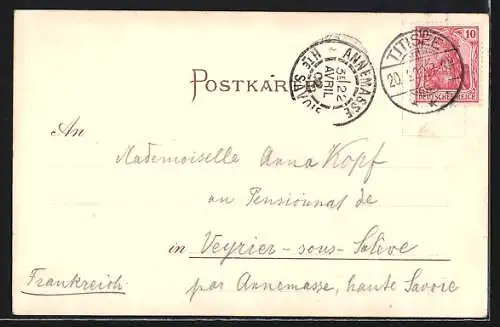 10
DEUTSCHES REICH
TITISEE
20.
ANNEMASSE
22
AVRIL
02
HTE SAVOIE
POSTKAR
An
Mademoiselle Anna Kopf
au Pensionnat de
in Veyrier-sous-Salève
Frankreich.
par Annemasse, haute Savoie